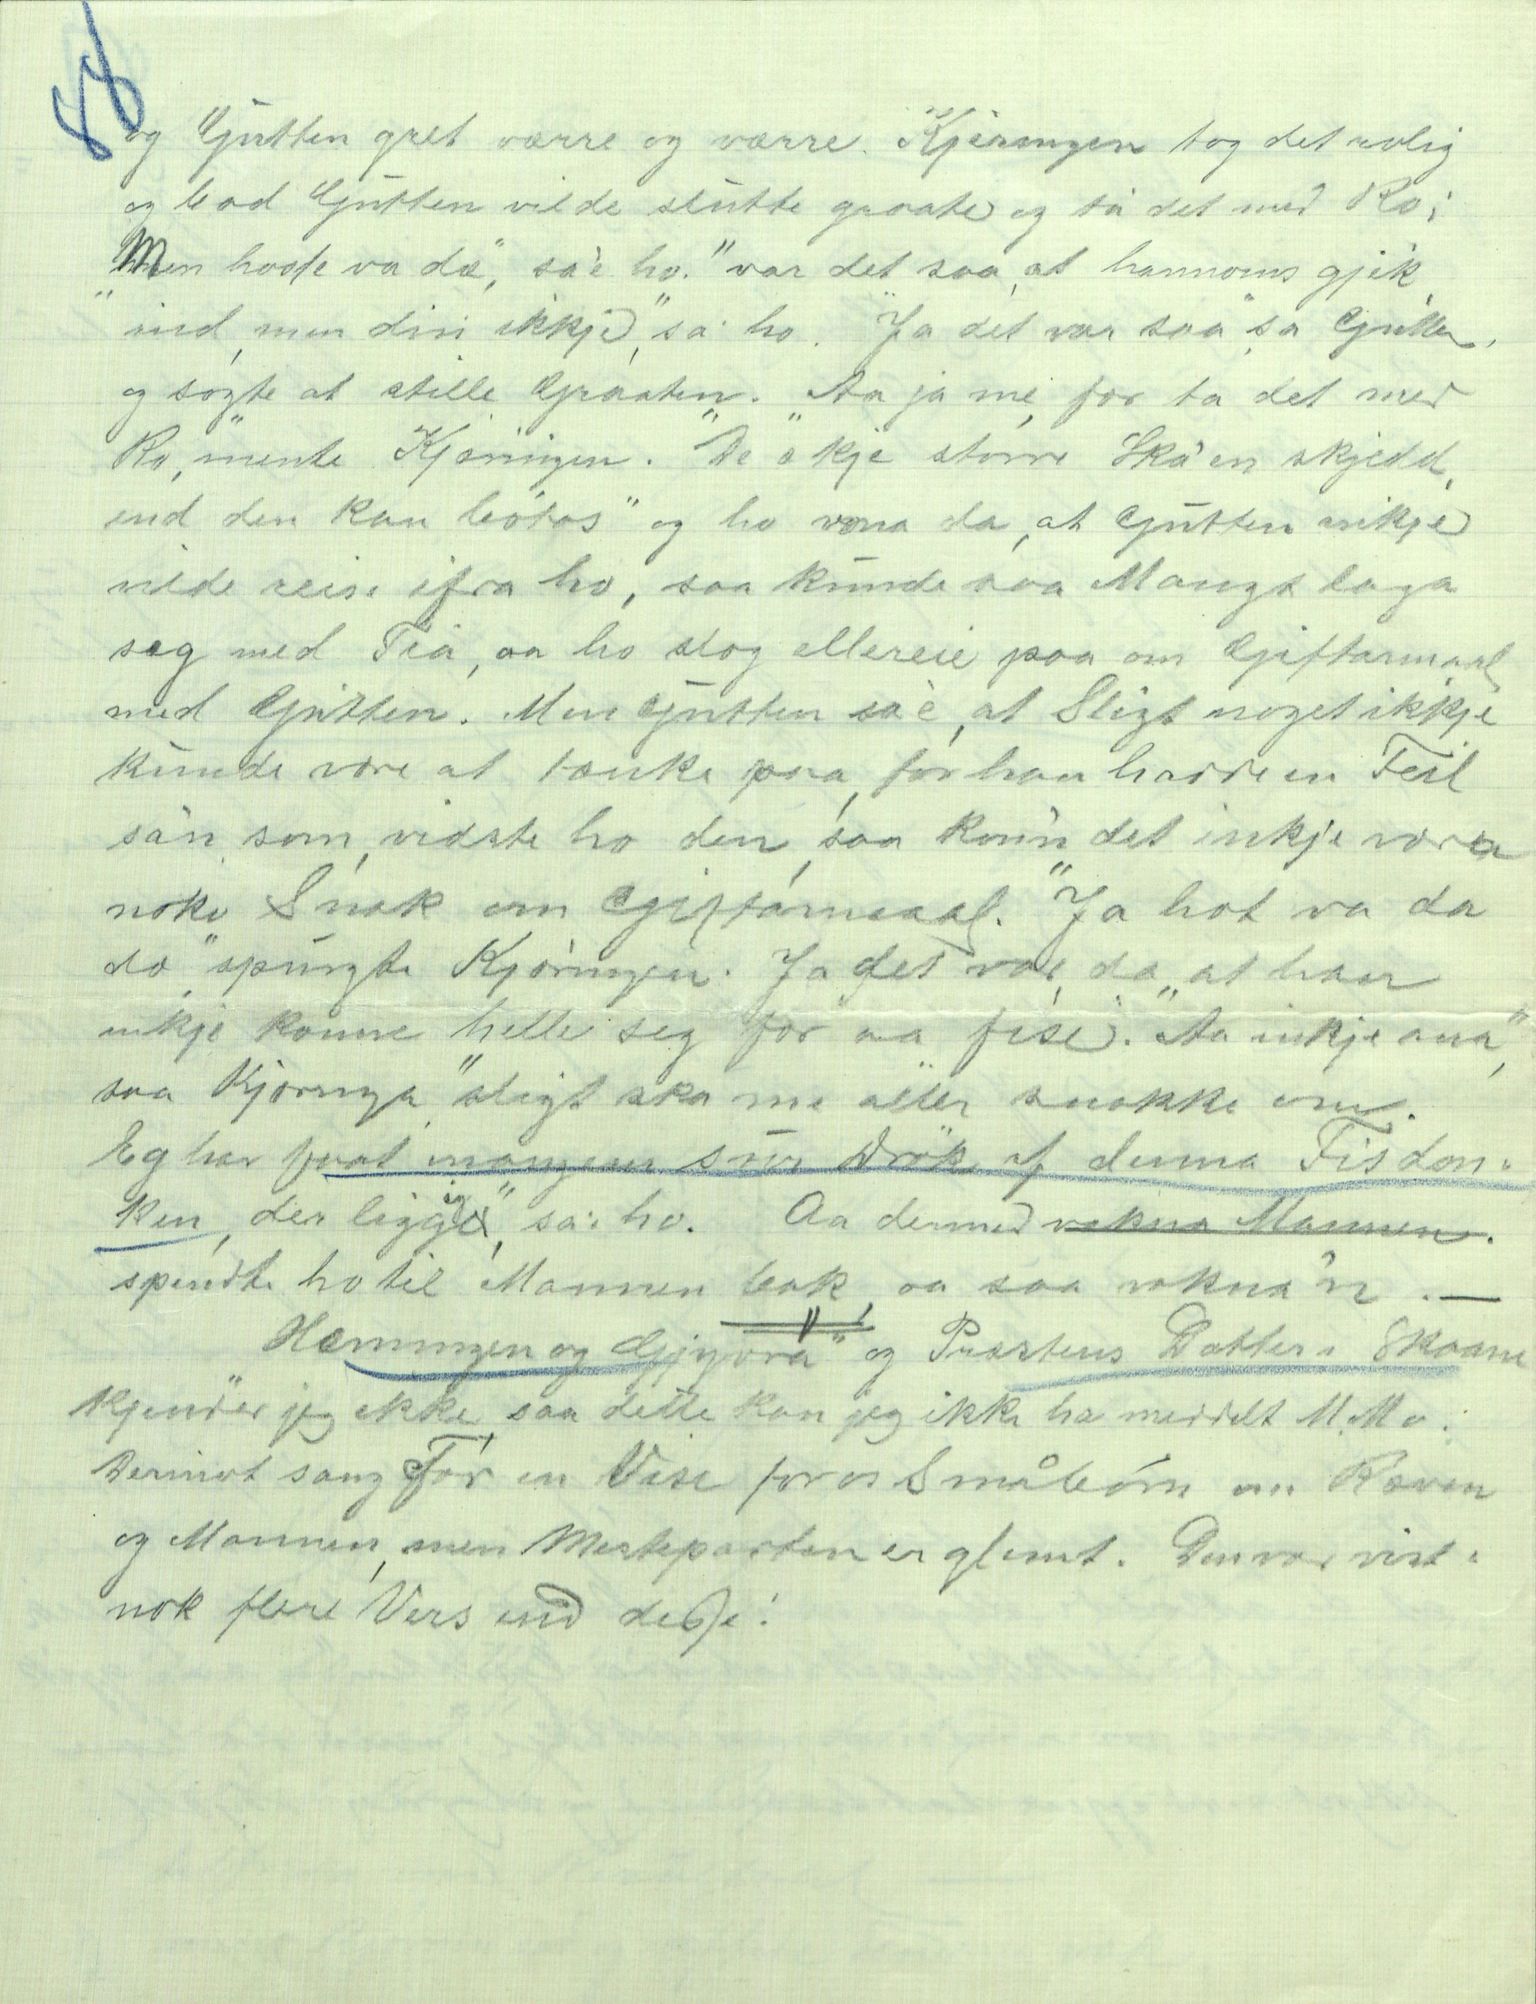 88
og Gutten gret værre og værre. Kjæringen tog det rolig
og bad Gutten vilde slutte graate og ta det med Ro;
"Men hosse va dæ", sa'e ho. "var det saa, at hannoms gjik
"ind, men din ikkje," sa' ho. "Ja det var saa" sa Gutten,
og søgte at stille Graaten. "Aa ja me for ta det med
Ro," mente Kjæringen. "De æ kje større Ska'en skjedd,
end den kan bøtas" og ho vona da, at Gutten inkje
vilde reise ifra ho, saa kunde saa Mangt laga
seg med Tia, aa ho slog allereie paa om Giftarmaal
med Gutten. Men Gutten sa'e, at Sligt noget ikkje
kunde være at tænke paa, for han hadde en Feil
sån, som, vidste ho den, saa konn det inkje vera
noke Snak om Giftarmaal. "Ja hot va da
dæ" spurgte Kjæringen. Ja det var da, at han
inkje konne helle seg for aa fise. "Aa inkje ana",
saa Kjæringa "sligt ska me aller snakke om.
Eg har faat mangein sur Drøk af denna Fisdon-
ken, der ligg ", sa' ho. Aa dermed vakna Mannen.
spendte ho til Mannen bak, aa saa vakna'n. —
Hæmingen og Gjyvra" og Præstens Datter i Skaane
kjender jeg ikke, saa dette kan jeg ikke ha meddelt M. Mo.
Derimot sang Far en Vise for os Småbørn om Ræven
og Mannen, men Mesteparten er glemt. Den var vist-
nok flere Vers end desse: